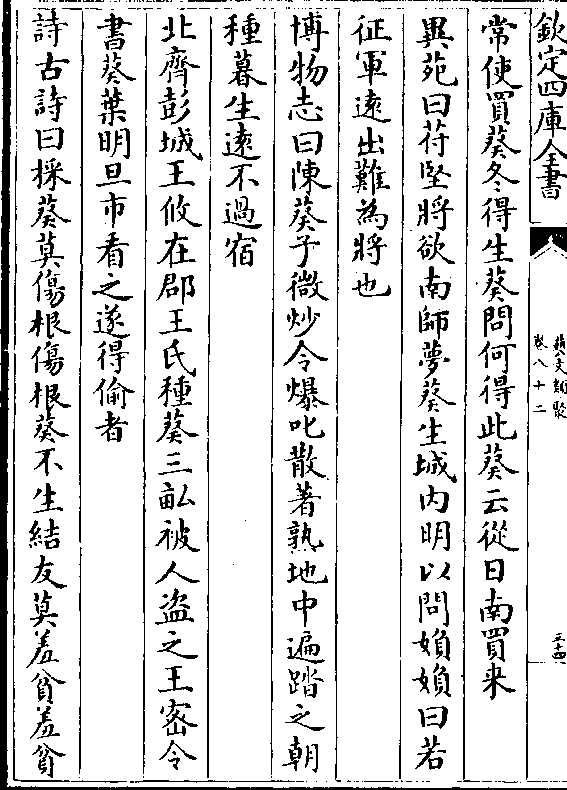 欽定四庫全書
藝文類聚
卷八十二
三十四
常使買葵冬得生葵問何得此葵云從日南買来
異苑曰苻堅將欲南師夢葵生城内明以問媍媍曰若
征軍逺出難為將也
博物志曰陳葵子微炒令爆叱散著熟地中遍踏之朝
種暮生逺不過宿
北齊彭城王攸在郡王氏種葵三畆被人盗之王宻令
書葵葉明旦市看之遂得偷者
詩古詩曰採葵莫傷根傷根葵不生結友莫羞貧羞貧